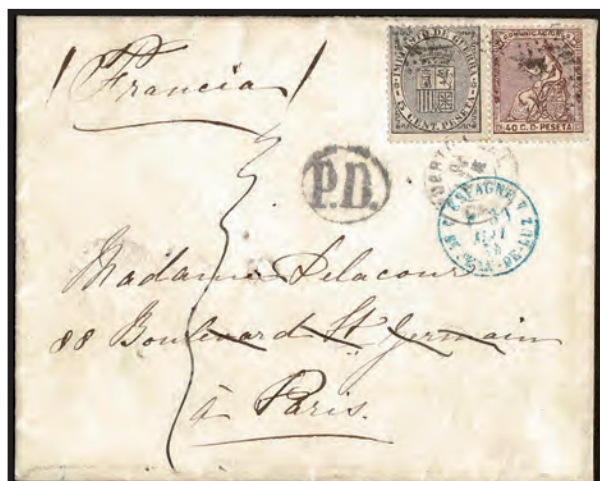 Francia
IMPUESTO DE GUERRA
5 CENT. PESETA
COMUNICACIONES
40 C. D. PESETA
P.D.
ESPAGNE
ST JEAN-DE-LUZ
Madame Delacour
88 Boulevard St Germain
à Paris.